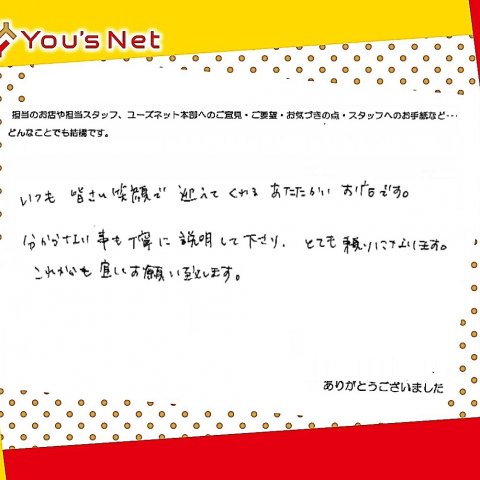 You's Net
担当のお店や担当スタッフ、ユーズネット本部へのご意見・ご要望・お気づきの点・スタッフへのお手紙など…
どんなことでも結構です。
いつも 皆さん笑顔で 迎えてくれる あたたかい お店です。
分からない事も丁寧に説明して下さり、とても頼りになります。
これからも宜しくお願い致します。
ありがとうございました